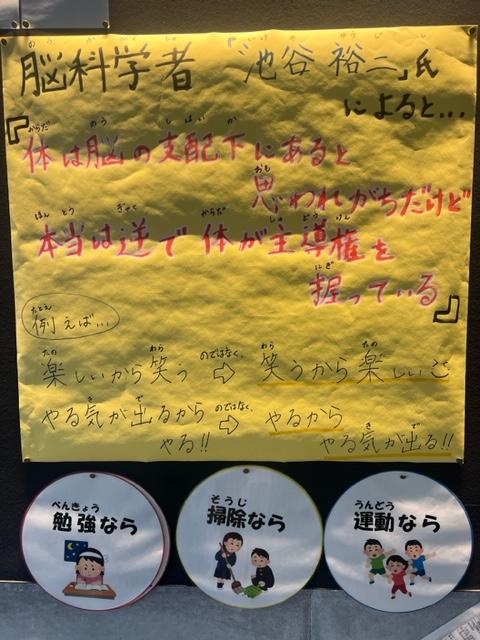 脳科学者 「池谷 裕二」氏
によると...
『体は脳の支配下にあると
思われがちだけど
本当は逆で体が主導権を
握っている』
例えば...
楽しいから笑う のではなく、⇨ 笑うから楽しい
やる気が出るから のではなく、⇨ やるから
やる!! やる気が出る!!
べんきょう
勉強なら
そうじ
掃除なら
うんどう
運動なら